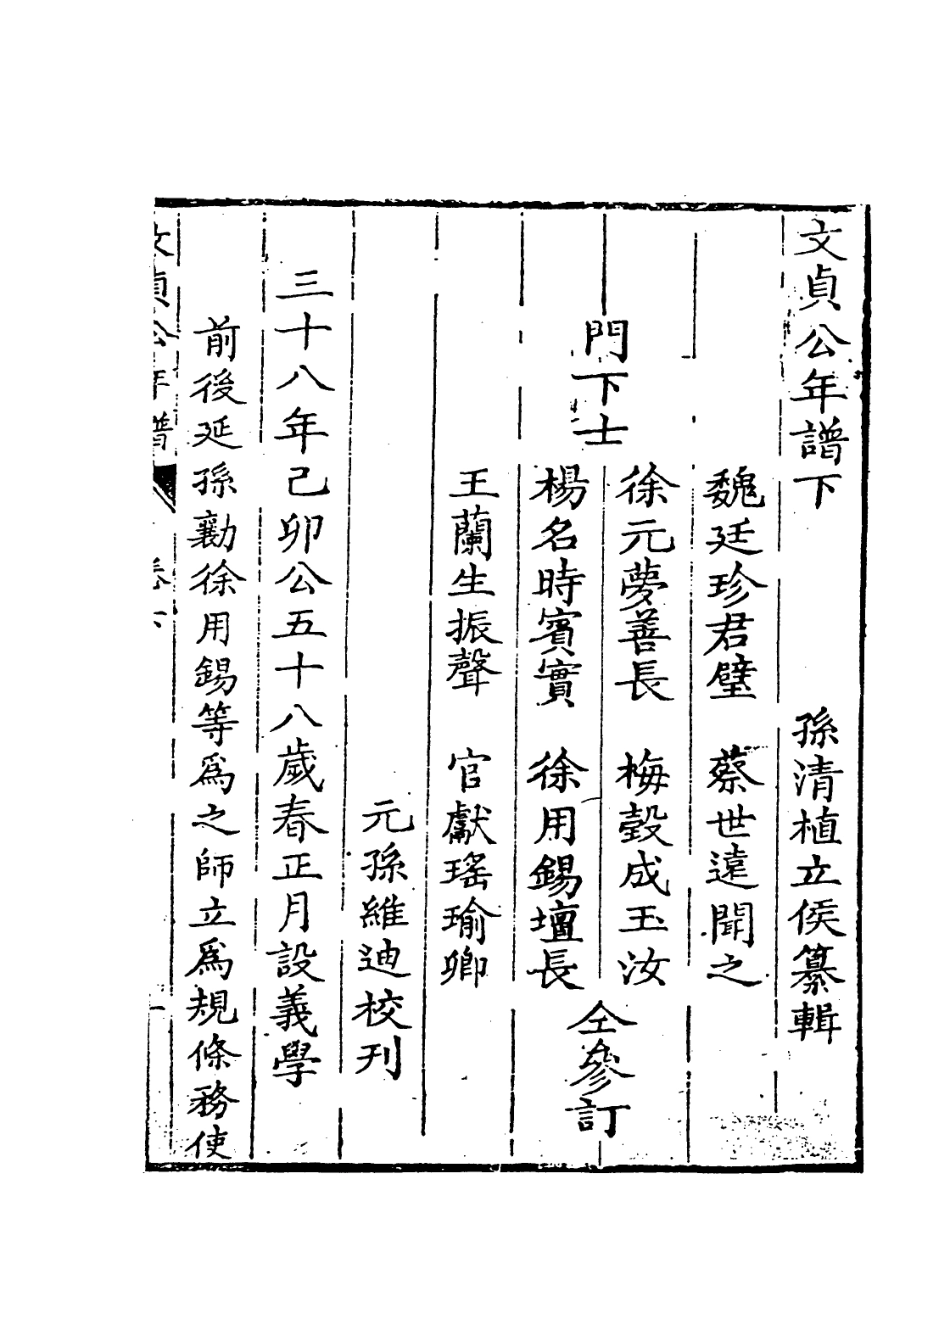 文貞公年譜下
孫清植立侯纂輯
魏廷珍君璧 蔡世遠聞之
門下士
徐元夢善長 梅瑴成玉汝
楊名時賓實 徐用錫壇長
仝參訂
王蘭生振聲 官獻瑤瑜卿
元孫維迪校刊
三十八年己卯公五十八歲春正月設義學
前後延孫勷徐用錫等爲之師立爲規條務使
文貞公年譜 卷下 一